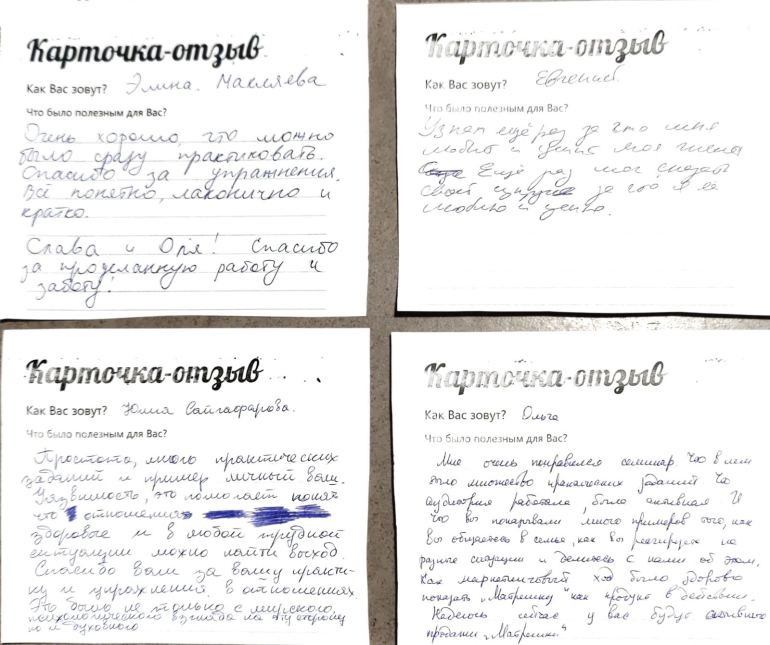 Карточка-отзыв
Как Вас зовут? Элина Макляева
Что было полезным для Вас?
Очень хорошо, что можно
было сразу практиковать.
Спасибо за упражнения.
Всё понятно, лаконично и
кратко.
Слава и Оля! Спасибо
за проделанную работу и
заботу!
Карточка-отзыв
Как Вас зовут? Евгений.
Что было полезным для Вас?
Узнал ещё раз за что меня
любит и ценит моя жена
Ещё раз мог сказать
своей супруге за что я её
люблю и ценю.
Карточка-отзыв
Как Вас зовут? Юлия Сайгафарова.
Что было полезным для Вас?
Простота, много практических
заданий и пример личный ваш.
Уязвимость, это помогает понять
что отношения
здоровые и в любой трудной
ситуации можно найти выход.
Спасибо вам за вашу практи-
ку и упражнения в отношениях
Это было не только с мирского,
психологического взгляда на эту сторону
но и духовного
Карточка-отзыв
Как Вас зовут? Ольга
Что было полезным для Вас?
Мне очень понравился семинар. Что в нем
было множество практических заданий. Что
аудитория работала, была активная. И
что вы показывали много примеров того, как
вы общаетесь в семье, как вы реагируете на
разные ситуации и делитесь с нами об этом.
Как маркетинговый ход было здорово
показать „Матрешку" как продукт в действии.
Надеюсь сейчас у вас будут активные
продажи „Матрешки"